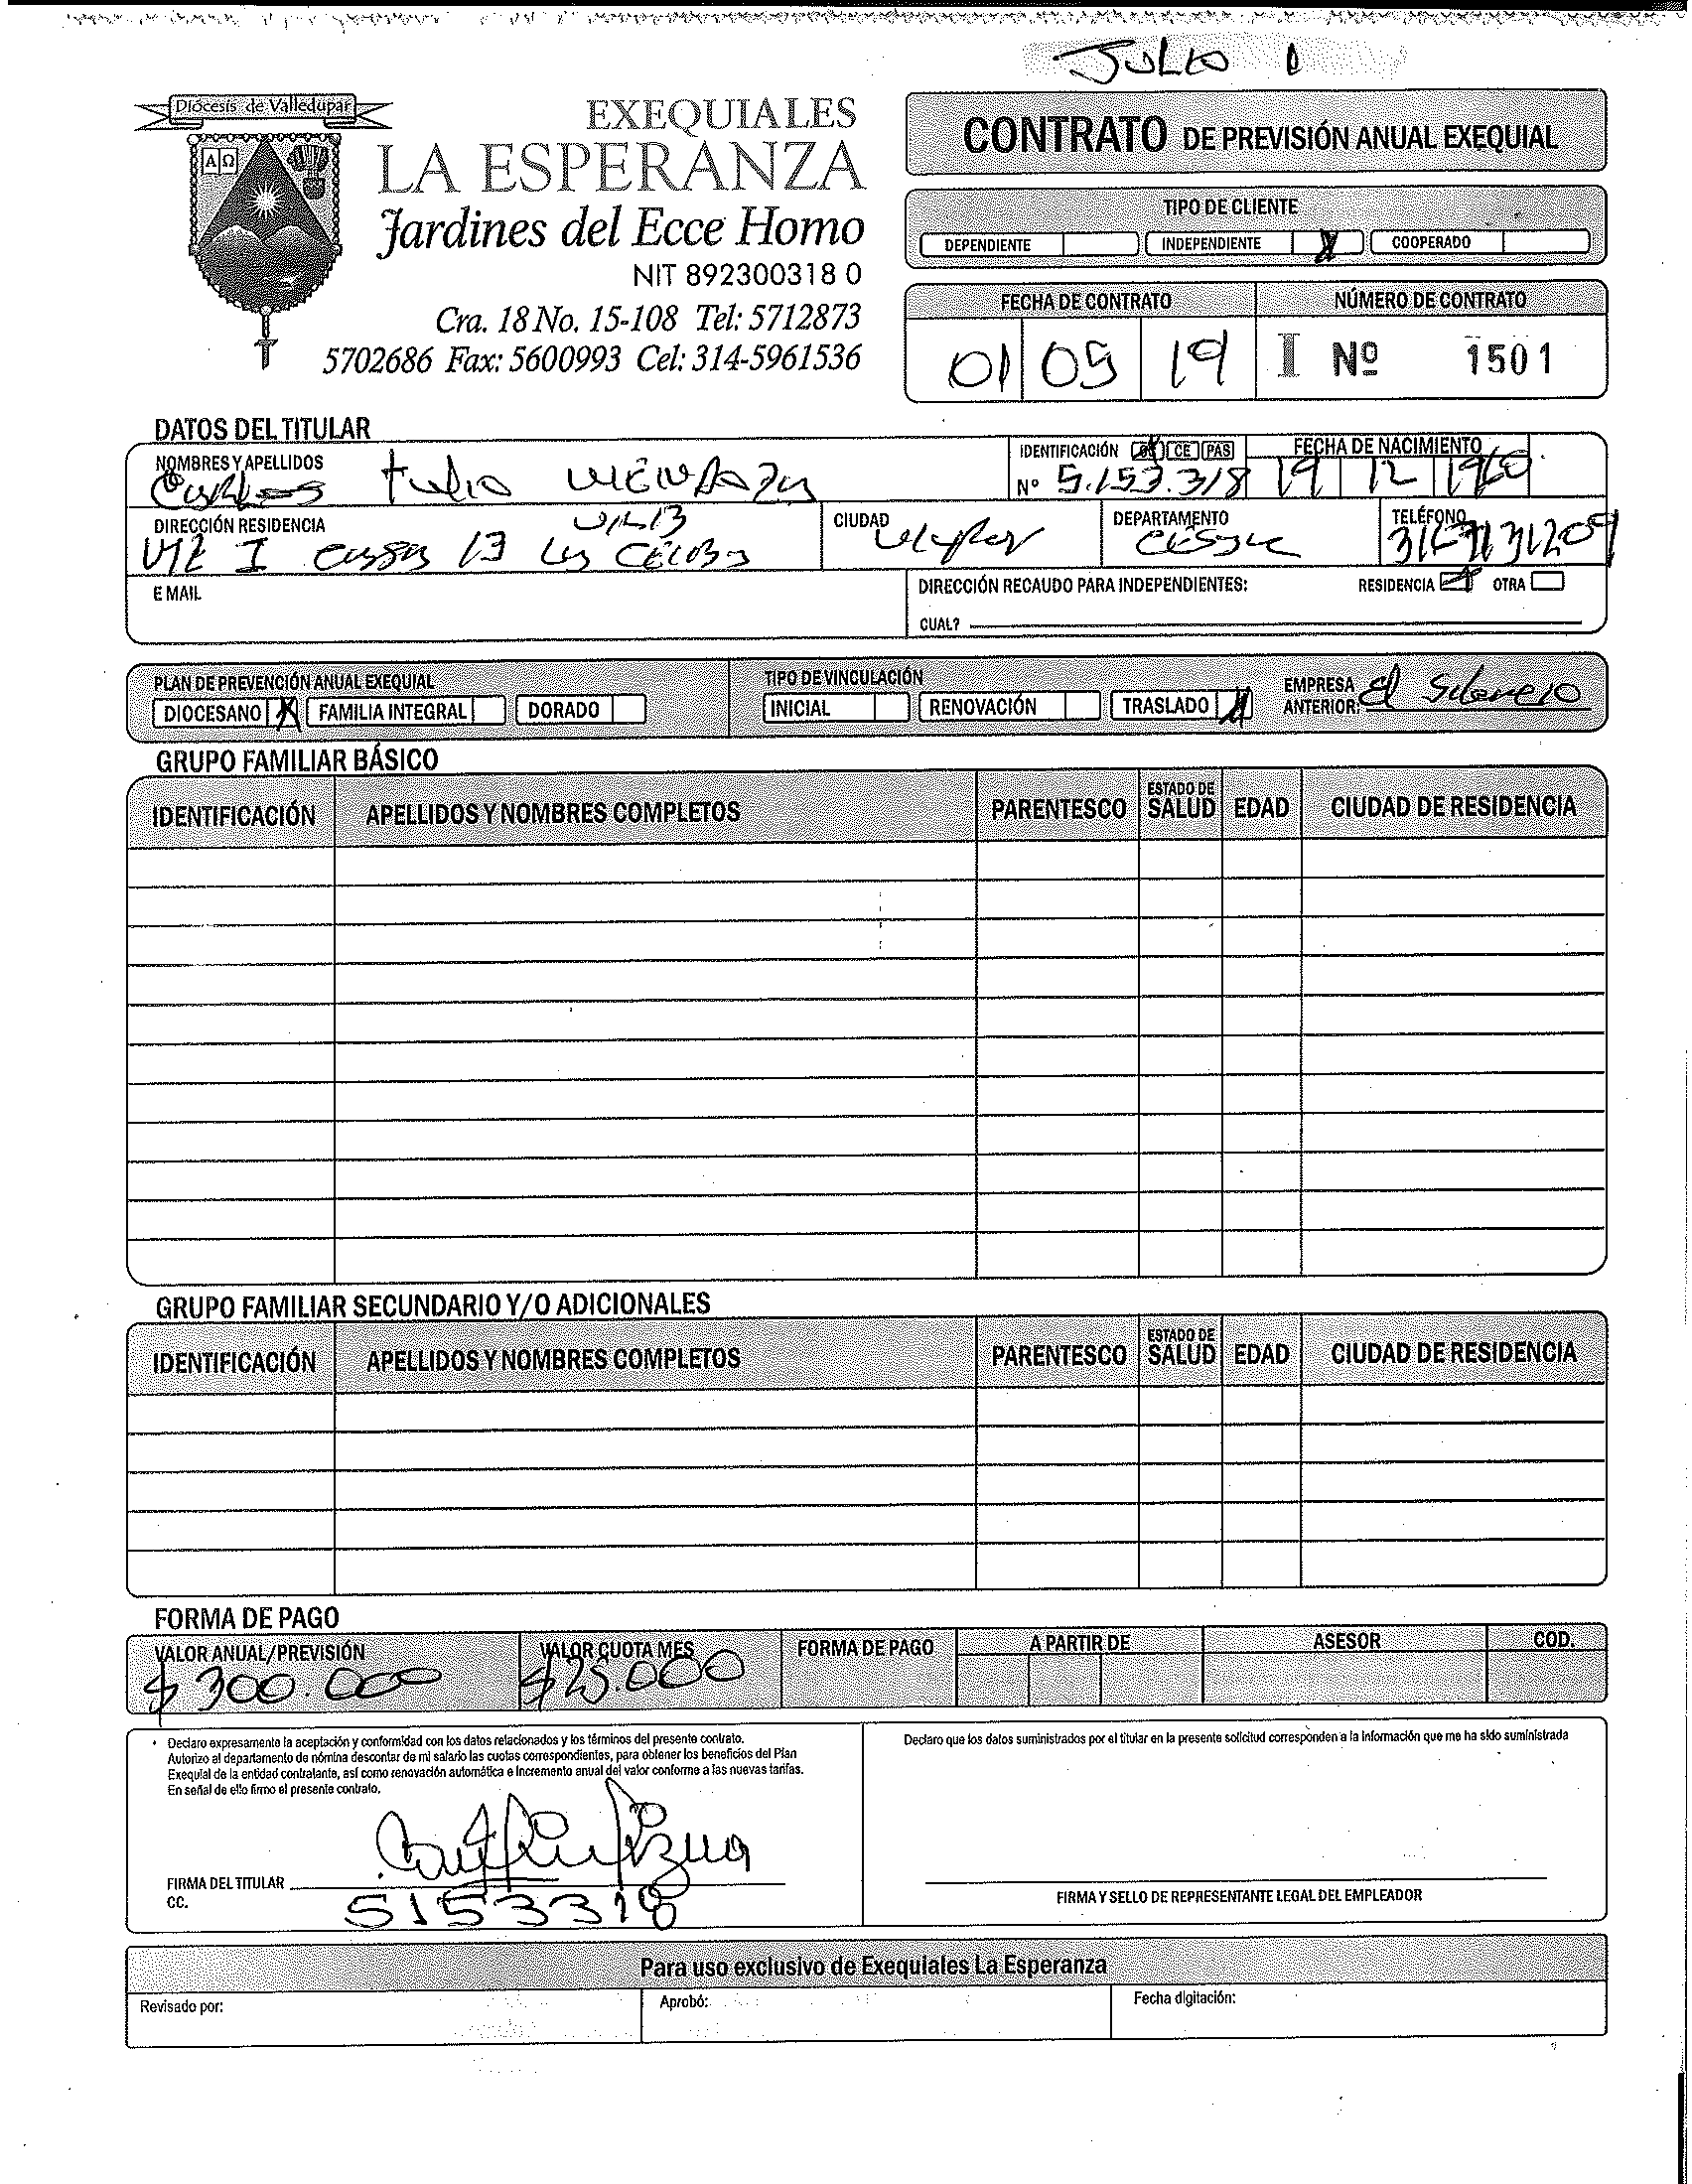 JULIO 1
Diócesis de Valledupar
A Ω
EXEQUIALES
LA ESPERANZA
Jardines del Ecce Homo
NIT 892300318 0
Cra. 18 No. 15-108 Tel: 5712873
5702686 Fax: 5600993 Cel: 314-5961536
CONTRATO DE PREVISIÓN ANUAL EXEQUIAL
TIPO DE CLIENTE
DEPENDIENTE INDEPENDIENTE X COOPERADO
FECHA DE CONTRATO NÚMERO DE CONTRATO
01 05 19 I Nº 1501
DATOS DEL TITULAR
NOMBRES Y APELLIDOS
Carlos Tulio Mendoza
IDENTIFICACIÓN CE PAS
Nº 5.153.318
FECHA DE NACIMIENTO
19 12 1960
DIRECCIÓN RESIDENCIA
I casa 13 Las
CIUDAD
DEPARTAMENTO
Cesar
TELÉFONO
E MAIL
DIRECCIÓN RECAUDO PARA INDEPENDIENTES: RESIDENCIA X OTRA
CUAL?
PLAN DE PREVENCIÓN ANUAL EXEQUIAL
DIOCESANO X FAMILIA INTEGRAL DORADO
TIPO DE VINCULACIÓN
INICIAL RENOVACIÓN TRASLADO X
EMPRESA
ANTERIOR: El
GRUPO FAMILIAR BÁSICO
IDENTIFICACIÓN APELLIDOS Y NOMBRES COMPLETOS PARENTESCO ESTADO DE SALUD EDAD CIUDAD DE RESIDENCIA
GRUPO FAMILIAR SECUNDARIO Y/O ADICIONALES
IDENTIFICACIÓN APELLIDOS Y NOMBRES COMPLETOS PARENTESCO ESTADO DE SALUD EDAD CIUDAD DE RESIDENCIA
FORMA DE PAGO
VALOR ANUAL/PREVISIÓN VALOR CUOTA MES FORMA DE PAGO A PARTIR DE ASESOR COD.
$ 300.000 $25.000
• Declaro expresamente la aceptación y conformidad con los datos relacionados y los términos del presente contrato.
Autorizo al departamento de nómina descontar de mi salario las cuotas correspondientes, para obtener los beneficios del Plan
Exequial de la entidad contratante, así como renovación automática e incremento anual del valor conforme a las nuevas tarifas.
En señal de ello firmo el presente contrato.
FIRMA DEL TITULAR
CC. 5153318
Declaro que los datos suministrados por el titular en la presente solicitud corresponden a la información que me ha sido suministrada
FIRMA Y SELLO DE REPRESENTANTE LEGAL DEL EMPLEADOR
Para uso exclusivo de Exequiales La Esperanza
Revisado por: Aprobó: Fecha digitación: